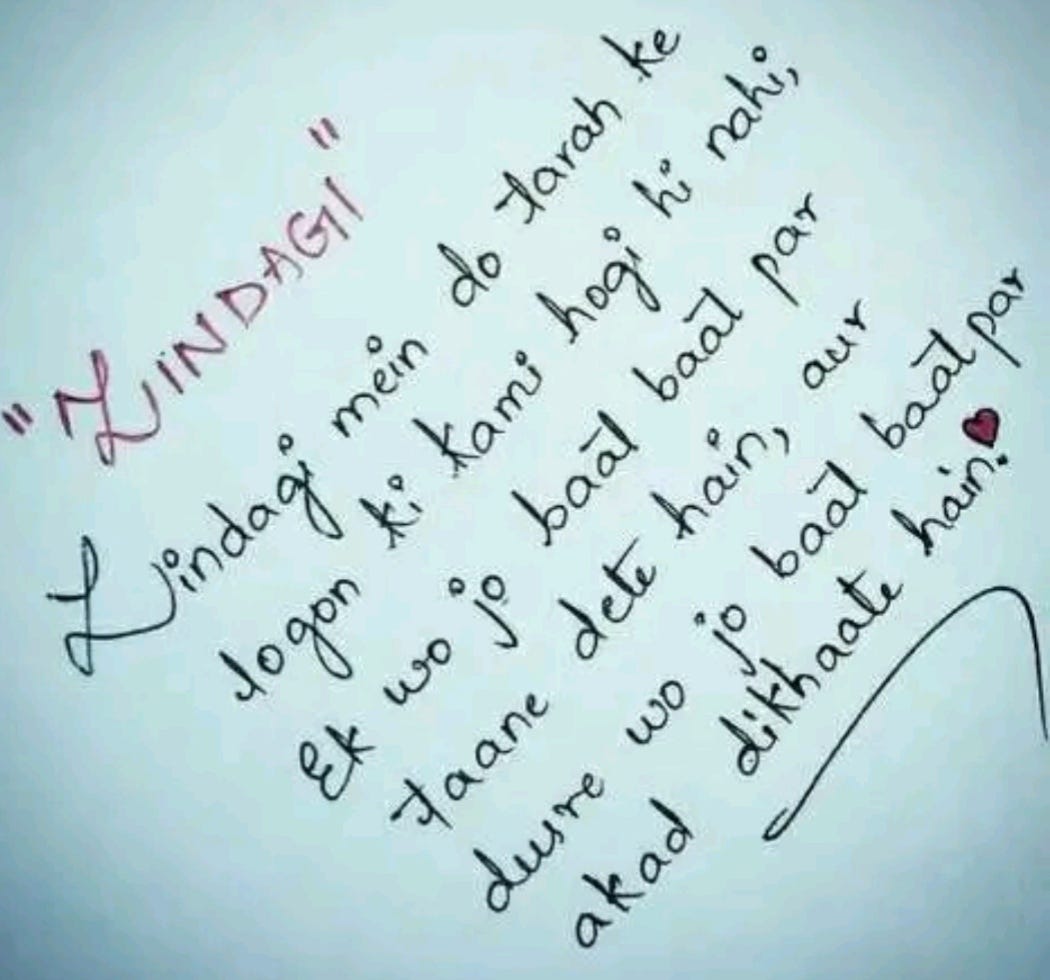 "ZINDAGI"
Zindagi mein do tarah ke
logon ki kami hogi hi nahi,
Ek wo jo baat baat par
taane dete hain, aur
dusre wo jo baat baat par
akad dikhaate hain.